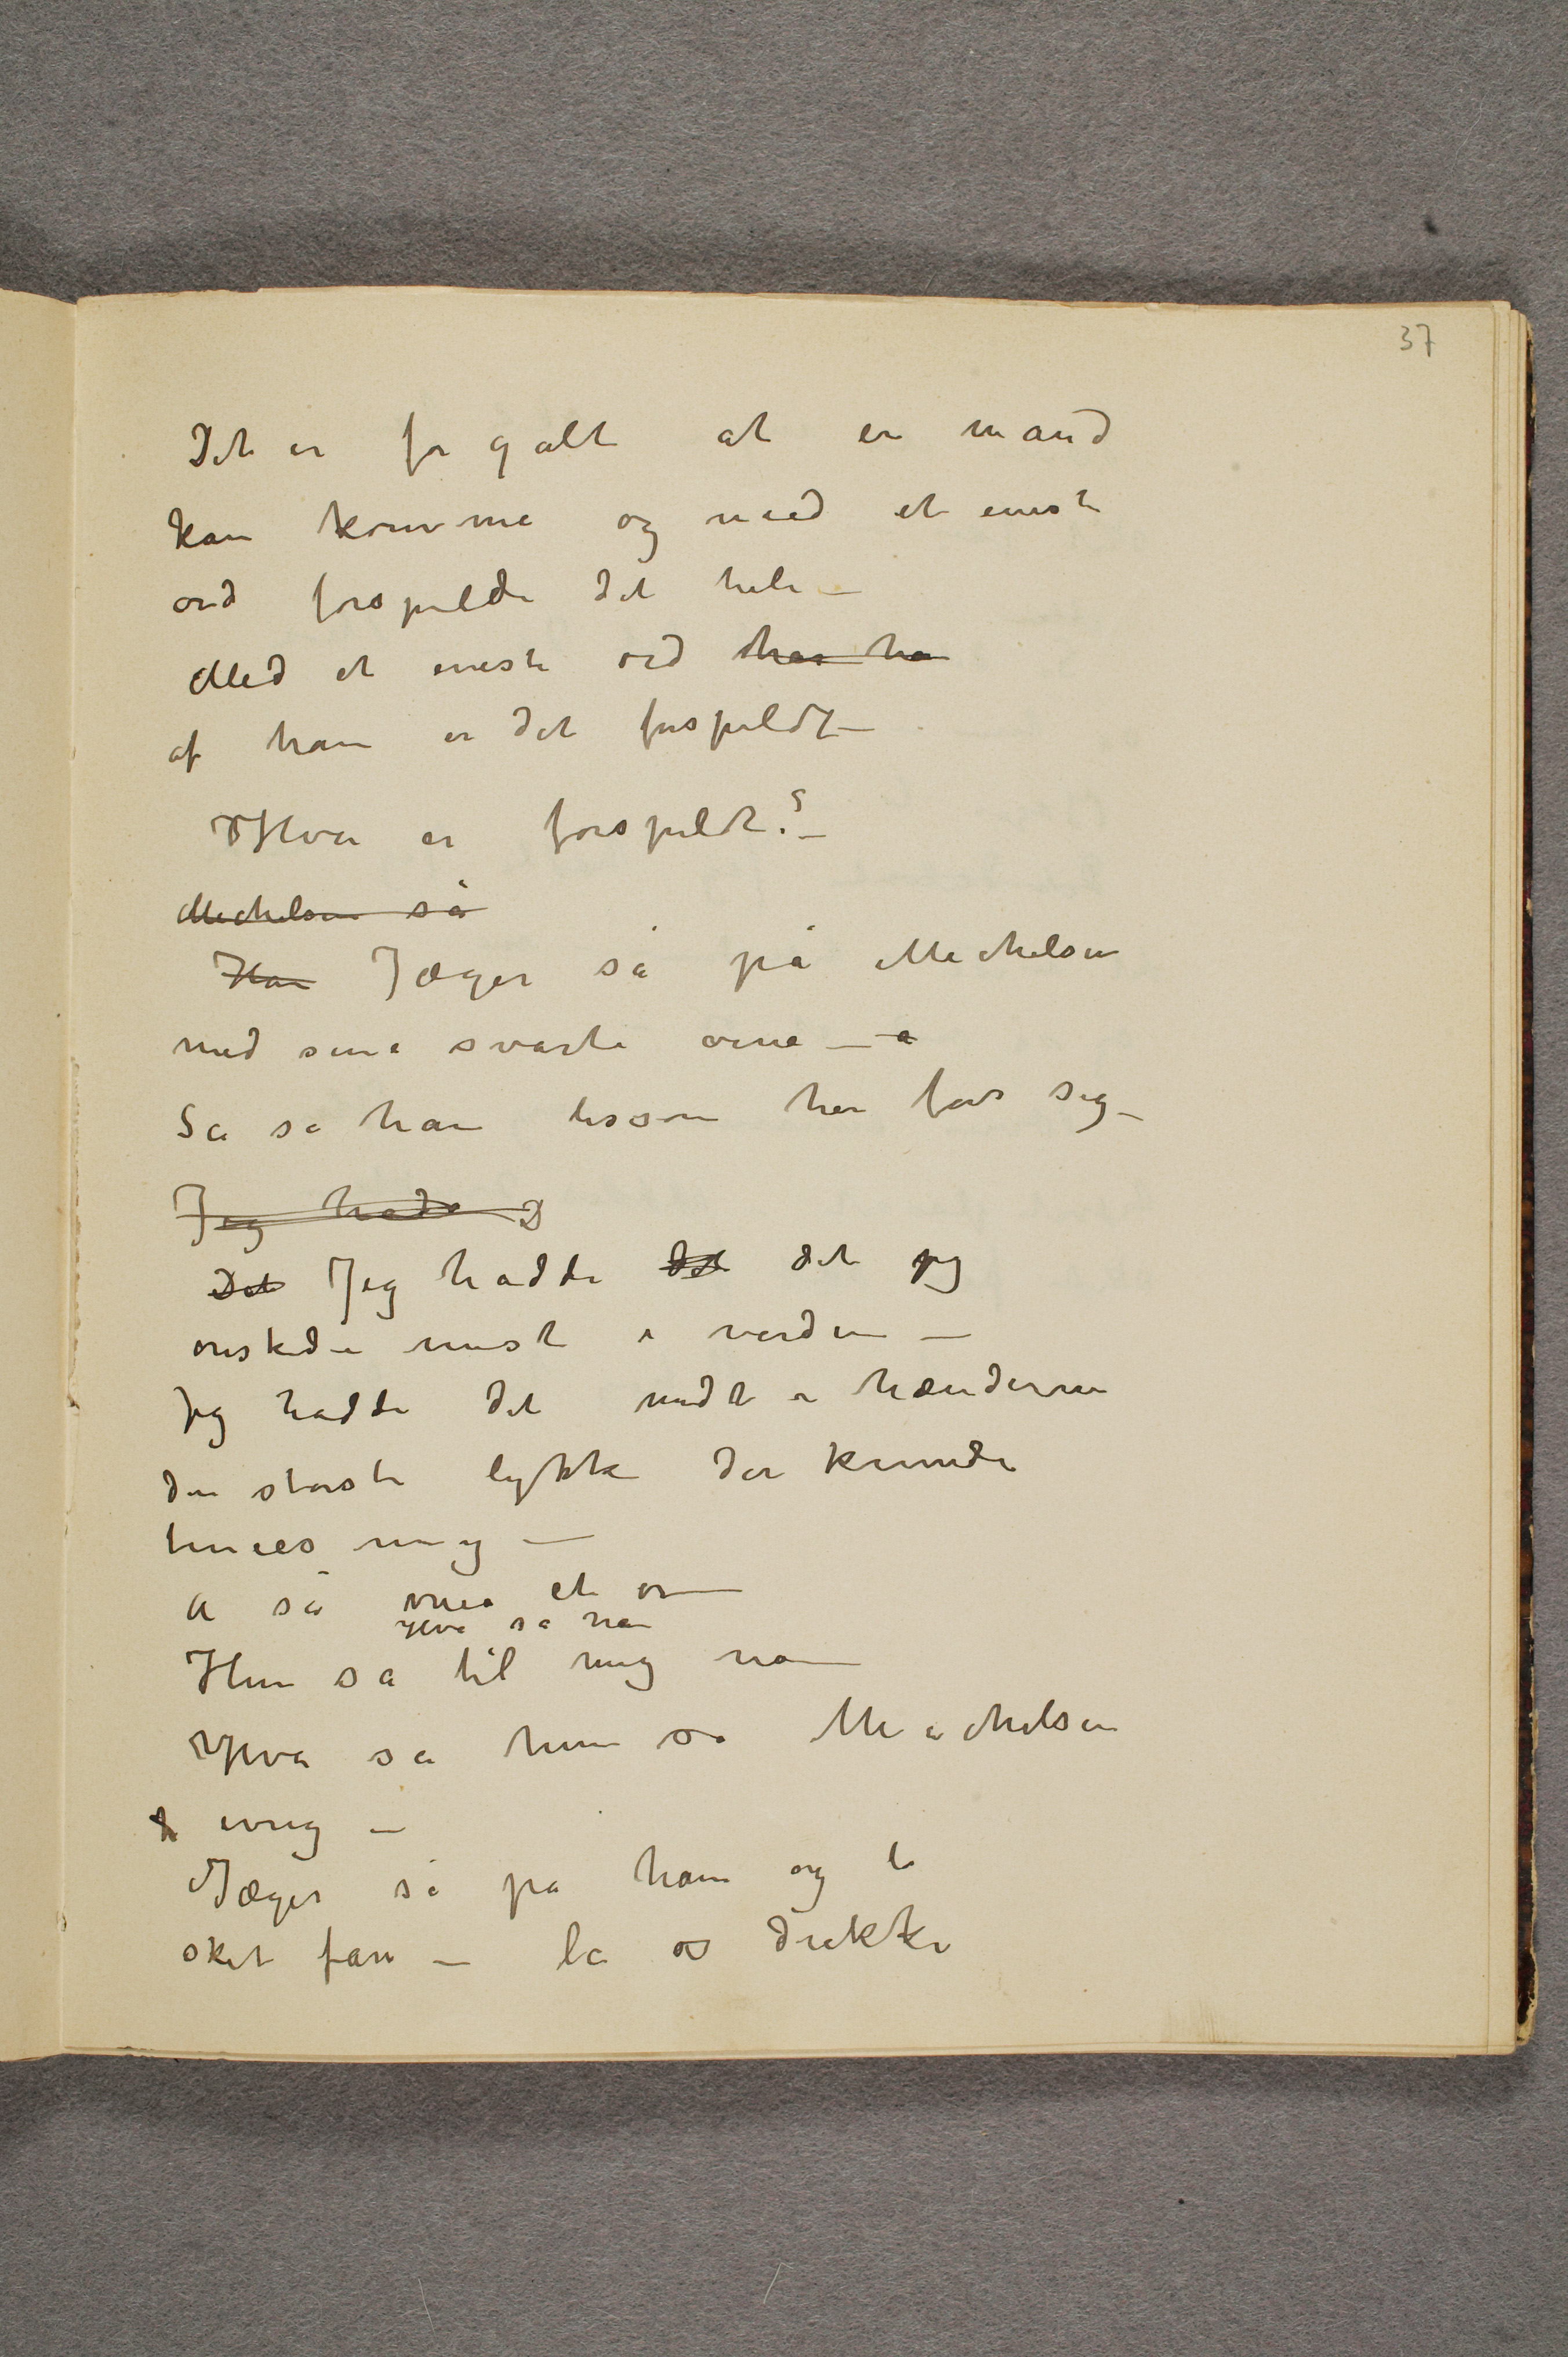 37
Det er for galt at en mand
kan komme og med et eneste
ord forspilde det hele –
Med et eneste ord har ha
af ham er det forspildt –
Hva er forspildt? –
Michelsen så
Han Jæger så på Michelsen
med sine svarte øine – a
Så sa han lissom hen for sig –
Jeg hade
Det Jeg hadde det det jeg
ønskede mest i verden –
Jeg hadde det midt i hænderne
den største lykke der kunde
times mig –
A så et or
Hva sa ha
Hun sa til mig no
Hva sa hun sa Michelsen
ivrig –
Jæger så på ham og lo
sket fan – la os drikke